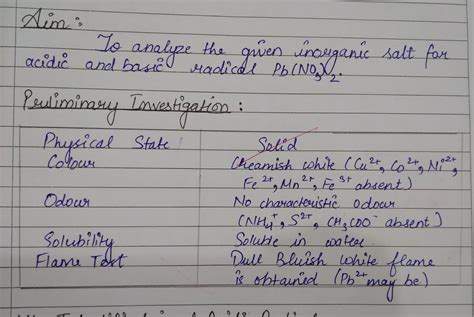 Aim :
To analyze the given inorganic salt for
acidic and basic radical Pb(NO3)2.
Preliminary Investigation :
Physical State Solid
Colour Creamish white (Cu2+, Co2+, Ni2+,
Fe2+, Mn2+, Fe3+ absent)
Odour No characteristic odour
(NH4+, S2-, CH3COO- absent)
Solubility Soluble in water
Flame Test Dull Bluish white flame
is obtained (Pb2+ may be)